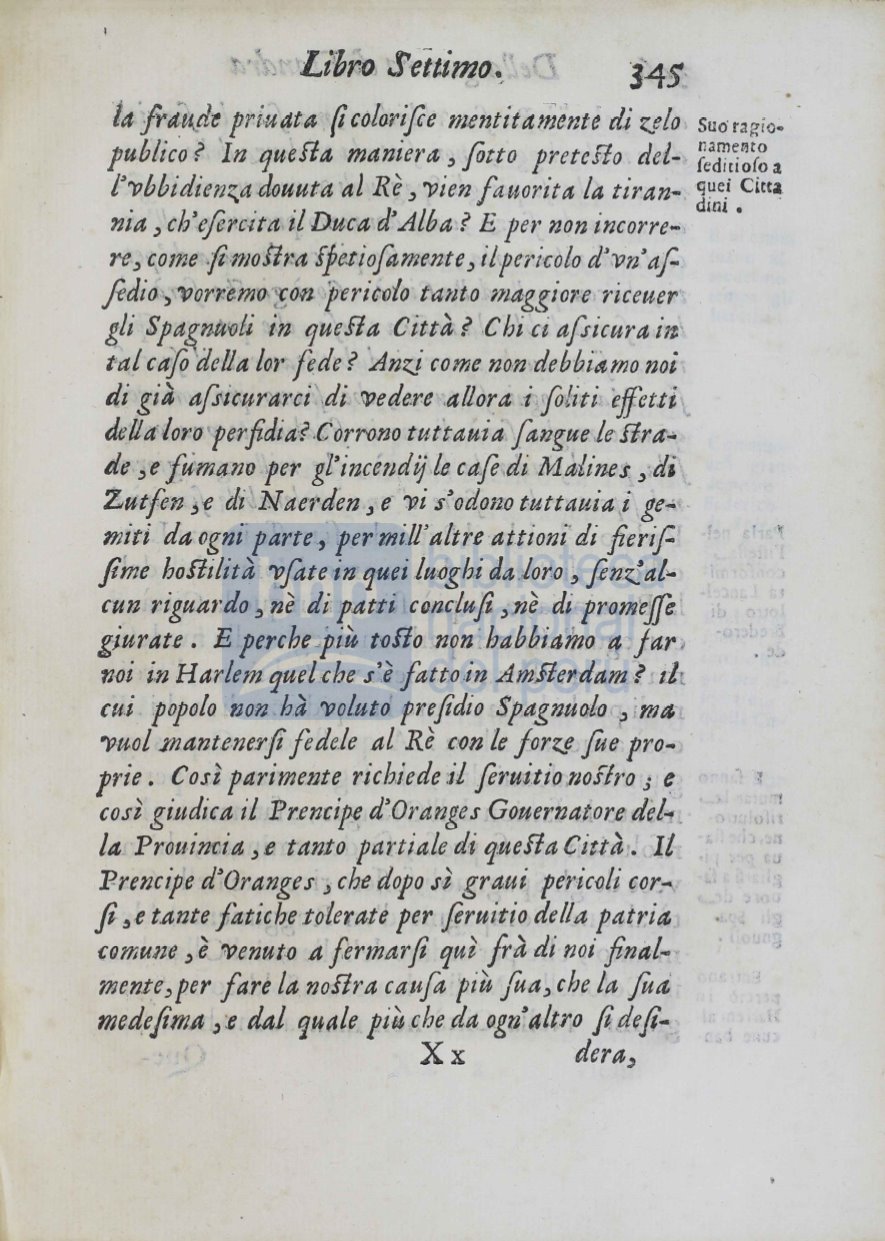 Libro Settimo. 345
la fraude priuata ſi coloriſce mentitamente di zelo
publico? In queſta maniera, ſotto preteſto del-
l'vbbidienza douuta al Rè, vien fauorita la tiran-
nia, ch'eſercita il Duca d'Alba? E per non incorre-
re, come ſi moſtra ſpetioſamente, il pericolo d'vn'aſ-
ſedio, vorremo con pericolo tanto maggiore riceuer
gli Spagnuoli in queſta Città? Chi ci aſsicura in
tal caſo della lor fede? Anzi come non debbiamo noi
di già aſsicurarci di vedere allora i ſoliti effetti
della loro perfidia? Corrono tuttauia ſangue le ſtra-
de, e fumano per gl'incendij le caſe di Malines, di
Zutfen, e di Naerden, e vi s'odono tuttauia i ge-
miti da ogni parte, per mill'altre attioni di fieriſ-
ſime hoſtilità vſate in quei luoghi da loro, ſenz'al-
cun riguardo, nè di patti concluſi, nè di promeſſe
giurate. E perche più toſto non habbiamo a far
noi in Harlem quel che s'è fatto in Amſterdam? il
cui popolo non hà voluto preſidio Spagnuolo, ma
vuol mantenerſi fedele al Rè con le forze ſue pro-
prie. Così parimente richiede il ſeruitio noſtro; e
così giudica il Prencipe d'Oranges Gouernatore del-
la Prouincia, e tanto partiale di queſta Città. Il
Prencipe d'Oranges, che dopo sì graui pericoli cor-
ſi, e tante fatiche tolerate per ſeruitio della patria
comune, è venuto a fermarſi quì frà di noi final-
mente, per fare la noſtra cauſa più ſua, che la ſua
medeſima, e dal quale più che da ogn'altro ſi deſi-
Xx dera,
Suo ragio-
namento
ſeditioſo a
quei Citta
dini.